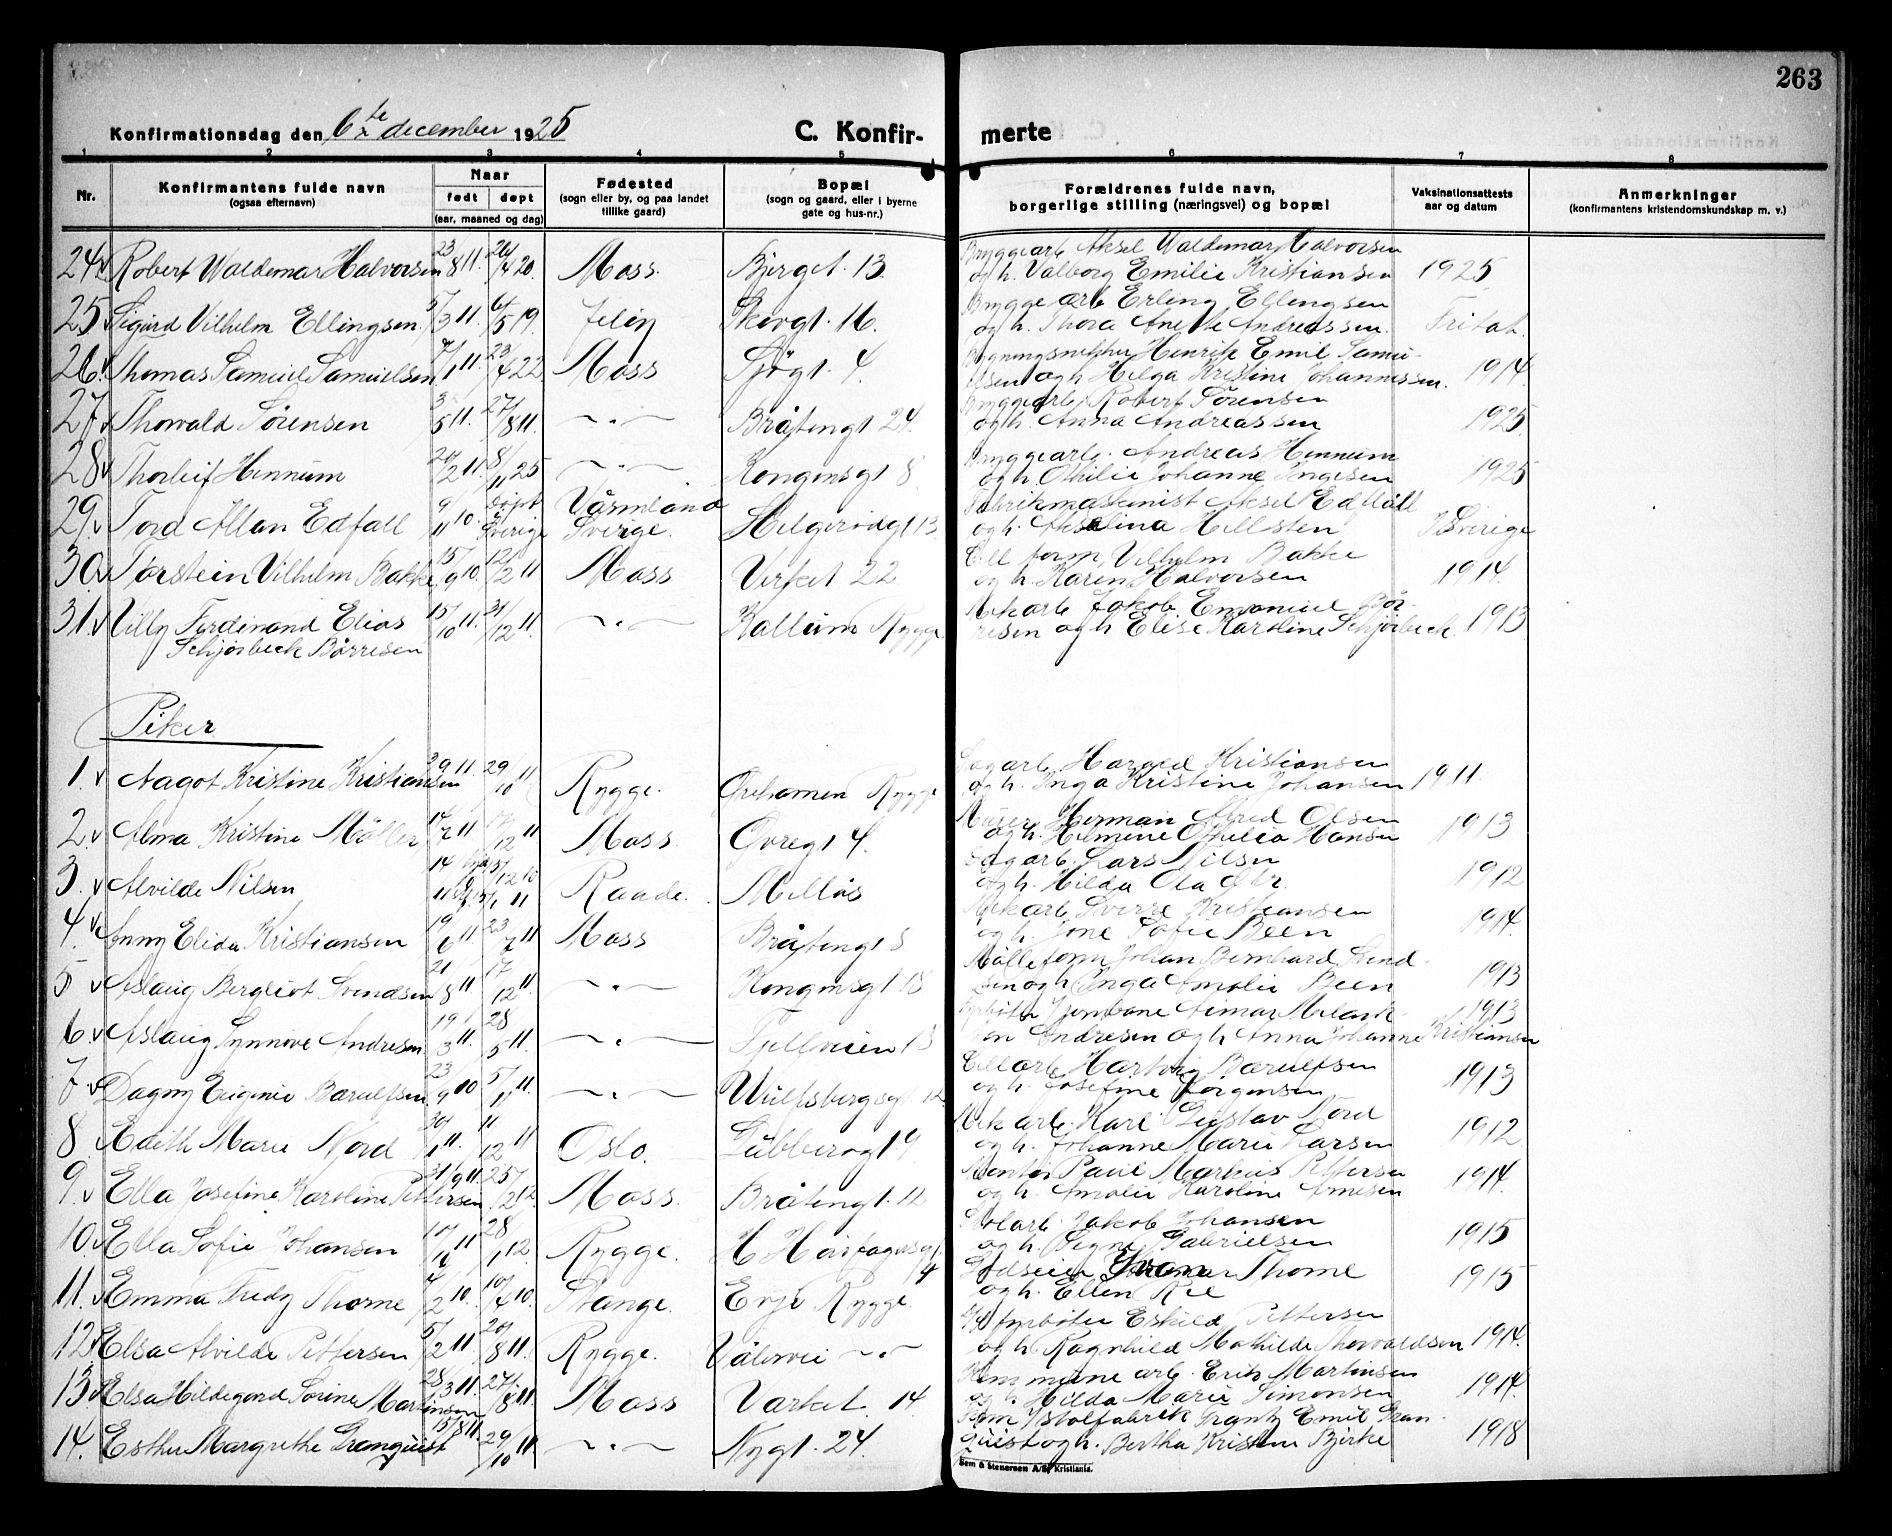 263
Konfirmationsdag den 6te december 1925 C. Konfir- merte
1 2 3 4 5 6 7 8
Nr. Konfirmantens fulde navn (ogsaa efternavn) Naar født døpt (aar, maaned og dag) Fødested (sogn eller by, og paa landet tillike gaard) Bopæl (sogn og gaard, eller i byerne gate og hus-nr.) Forældrenes fulde navn, borgerlige stilling (næringsvei) og bopæl Vaksinationsattests aar og datum Anmerkninger (konfirmantens kristendomskundskap m. v.)
24 Robert Waldemar Halvorsen 23/8 11. 26/4 20. Moss. Bjerget. 13. Bryggearb Aksel Waldemar Halvorsen
og h. Valborg Emilie Kristiansen 1925
25 Sigurd Vilhelm Ellingsen 5/3 11. 6/5 19. Jeløy Skovgt. 16. Bryggearb Erling Ellingsen
og h. Thora Anette Andreassen. Fritat.
26 Thomas Samuel Samuelsen /1 11. 23/4 22 Moss Sjøgt. 4. Henrik Emil Samu-
elsen og h Helga Kristine Johannessen. 1914
27 Thorvald Sørensen 3/5 11. 27/8 11. -"- Bråtengt 24. Bryggearb. Robert Sørensen
og h. Anna Andreassen 1925
28 Thorleif Hennum 20/2 11. 8/11 25 -"- Kongensgt 8 Bryggearb. Andreas Hennum
og h. Othilie Johanne Ingesen 1925
29 Tord Allan Edfall 9/11 10. døpt i Sverige Värmland Sverige. Helgerødgt 13 Fabrikmaskinist Aksel Edfäll
og h. Akselina Hellsten I Sverige
30 Torstein Vilhelm Bakke 15/9 10. 12/2 11 Moss Verket 22 Cell form Vilhelm Bakke
og h. Karen Halvorsen 1914.
31 Villy Ferdinand Elias 15/10 11. 31/12 11 -"- Kallum Rygge Mek arb Jakob Emanuel Bør-
Schjørbeck Børresen resen og h Elise Karoline Schjørbeck. 1913
Piker
1. Aagot Kristine Kristiansen 3/9 11. 29/10 11 Rygge. Ørehamen Rygge Sagarb Harald Kristiansen
og h. Inga Kristine Johansen 1911
2. Alma Kristine Møller 14/7 11 17/12 11 Moss. Øvregt 4. Murer Herman Alfred Olsen
og h. Helmine Othilia Hansen 1913
3. Alvilde Nilsen 14/11 Raade. Melløs Sagarb. Lars Nilsen
og h. Hilda Ola 1912
4. Anny Elida Kristiansen 19/6 11 23/7 11 Moss Bråtengt 8 Mek arb Sverre Kristiansen
og h. Jone Sofie Been 1914
5 Aslaug Bergliot Svendsen 21/8 11 17/12 11 -"- Kongensgt. 18 Mølleform Johan Bernhard Svend-
sen og h. Inga Amalie Been 1913
6 Aslaug Synnøve Andresen 19/3 11. 28/5 11. -"- Tjellveien 13 Einar
Andresen og h Anna Johanne Kristiansen 1913
7 Dagny Eugenie Baruelfsen 23/9 10 5/11 11 -"- Wulfsbergsgt 12 Cellarb Hartvig Baruelfsen
og h. Josefine Jørgensen 1913
8 Edith Marie Nord 30/1 11. 11/12 11 Oslo. Lübberogt 19 Mek arb. Karl Gustav Nord
og h. Johanne Marie Larsen 1912
9. Ella Josefine Karoline Pettersen 21/9 11. 25/2 12 Moss. Bråtengt. 12 Montør Paul Markus Pettersen
og h. Amalie Karoline Arnesen 1914.
10. Ella Sofie Johansen 10/11 28/1 12 Rygge. H Hårfagresgt 4 Stolarb. Jakob Johansen
og h. Signe Gabrielsen 1915
11. Emma Fredy Thorne 4/2 10. 10/4 10. Stange. Evje Rygge. Godseier Ivan Thorne
og h. Ellen Rie 1915
12. Elsa Alvilde Pettersen 5/2 11 20/8 11. Rygge. Vålerveien -"- Fyrbøter Eskild Pettersen
og h. Ragnhild Mathilde Thorvaldsen 1914.
13. Elsa Hildegard Sørine Martinsen 28/3 11. 27/8 11. Moss Værket. 14 arb. Erik Martinsen
og h. Hilda Marie Simonsen 1914.
14. Esther Margrethe Granquist 15/8 11. 29/10 11. -"- Nygt. 24. Form i Stolfabrik Frantz Emil Gran-
quist og h. Bertha Kristen Bjerke 1918
Sem & Stenersen A/S, Kristiania.